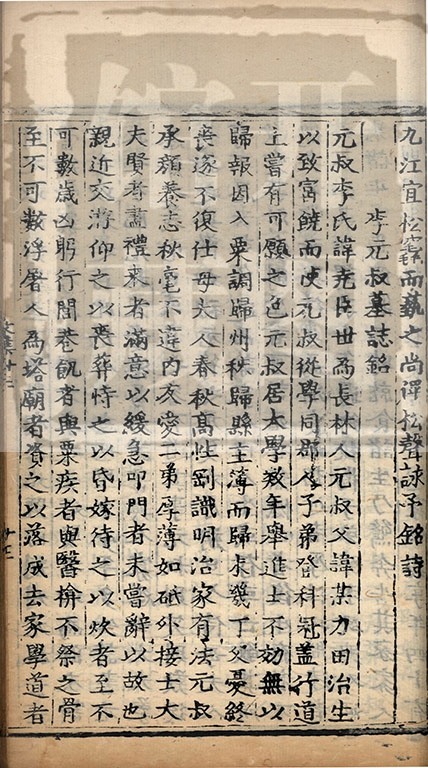 九江宜松竁而藝之尚俾松聲諫予銘詩
李元叔墓誌銘
元叔李氏諱尭臣世為長林人元叔父諱某力田治生
以致富饒而使元叔從學同郡人子弟登科冠盖行道
上嘗有可願之色元叔居太學数年舉進士不効無以
歸報因入粟調歸州秭歸縣主簿而歸未幾丁父憂終
喪遂不復仕母夫人春秋髙性剛識明治家有法元叔
承顔養志秋毫不違内友愛二弟厚薄如砥外接士大
夫賢者盡禮来者滿意以緩急叩門者未嘗辭以故也
親近交游仰之以喪葬恃之以昏嫁待之以炊者至不
可數歲凶躬行閭巷飢者與粟疾者與醫揜不祭之骨
至不可數浮屠人為塔廟者資之以落成去家學道者